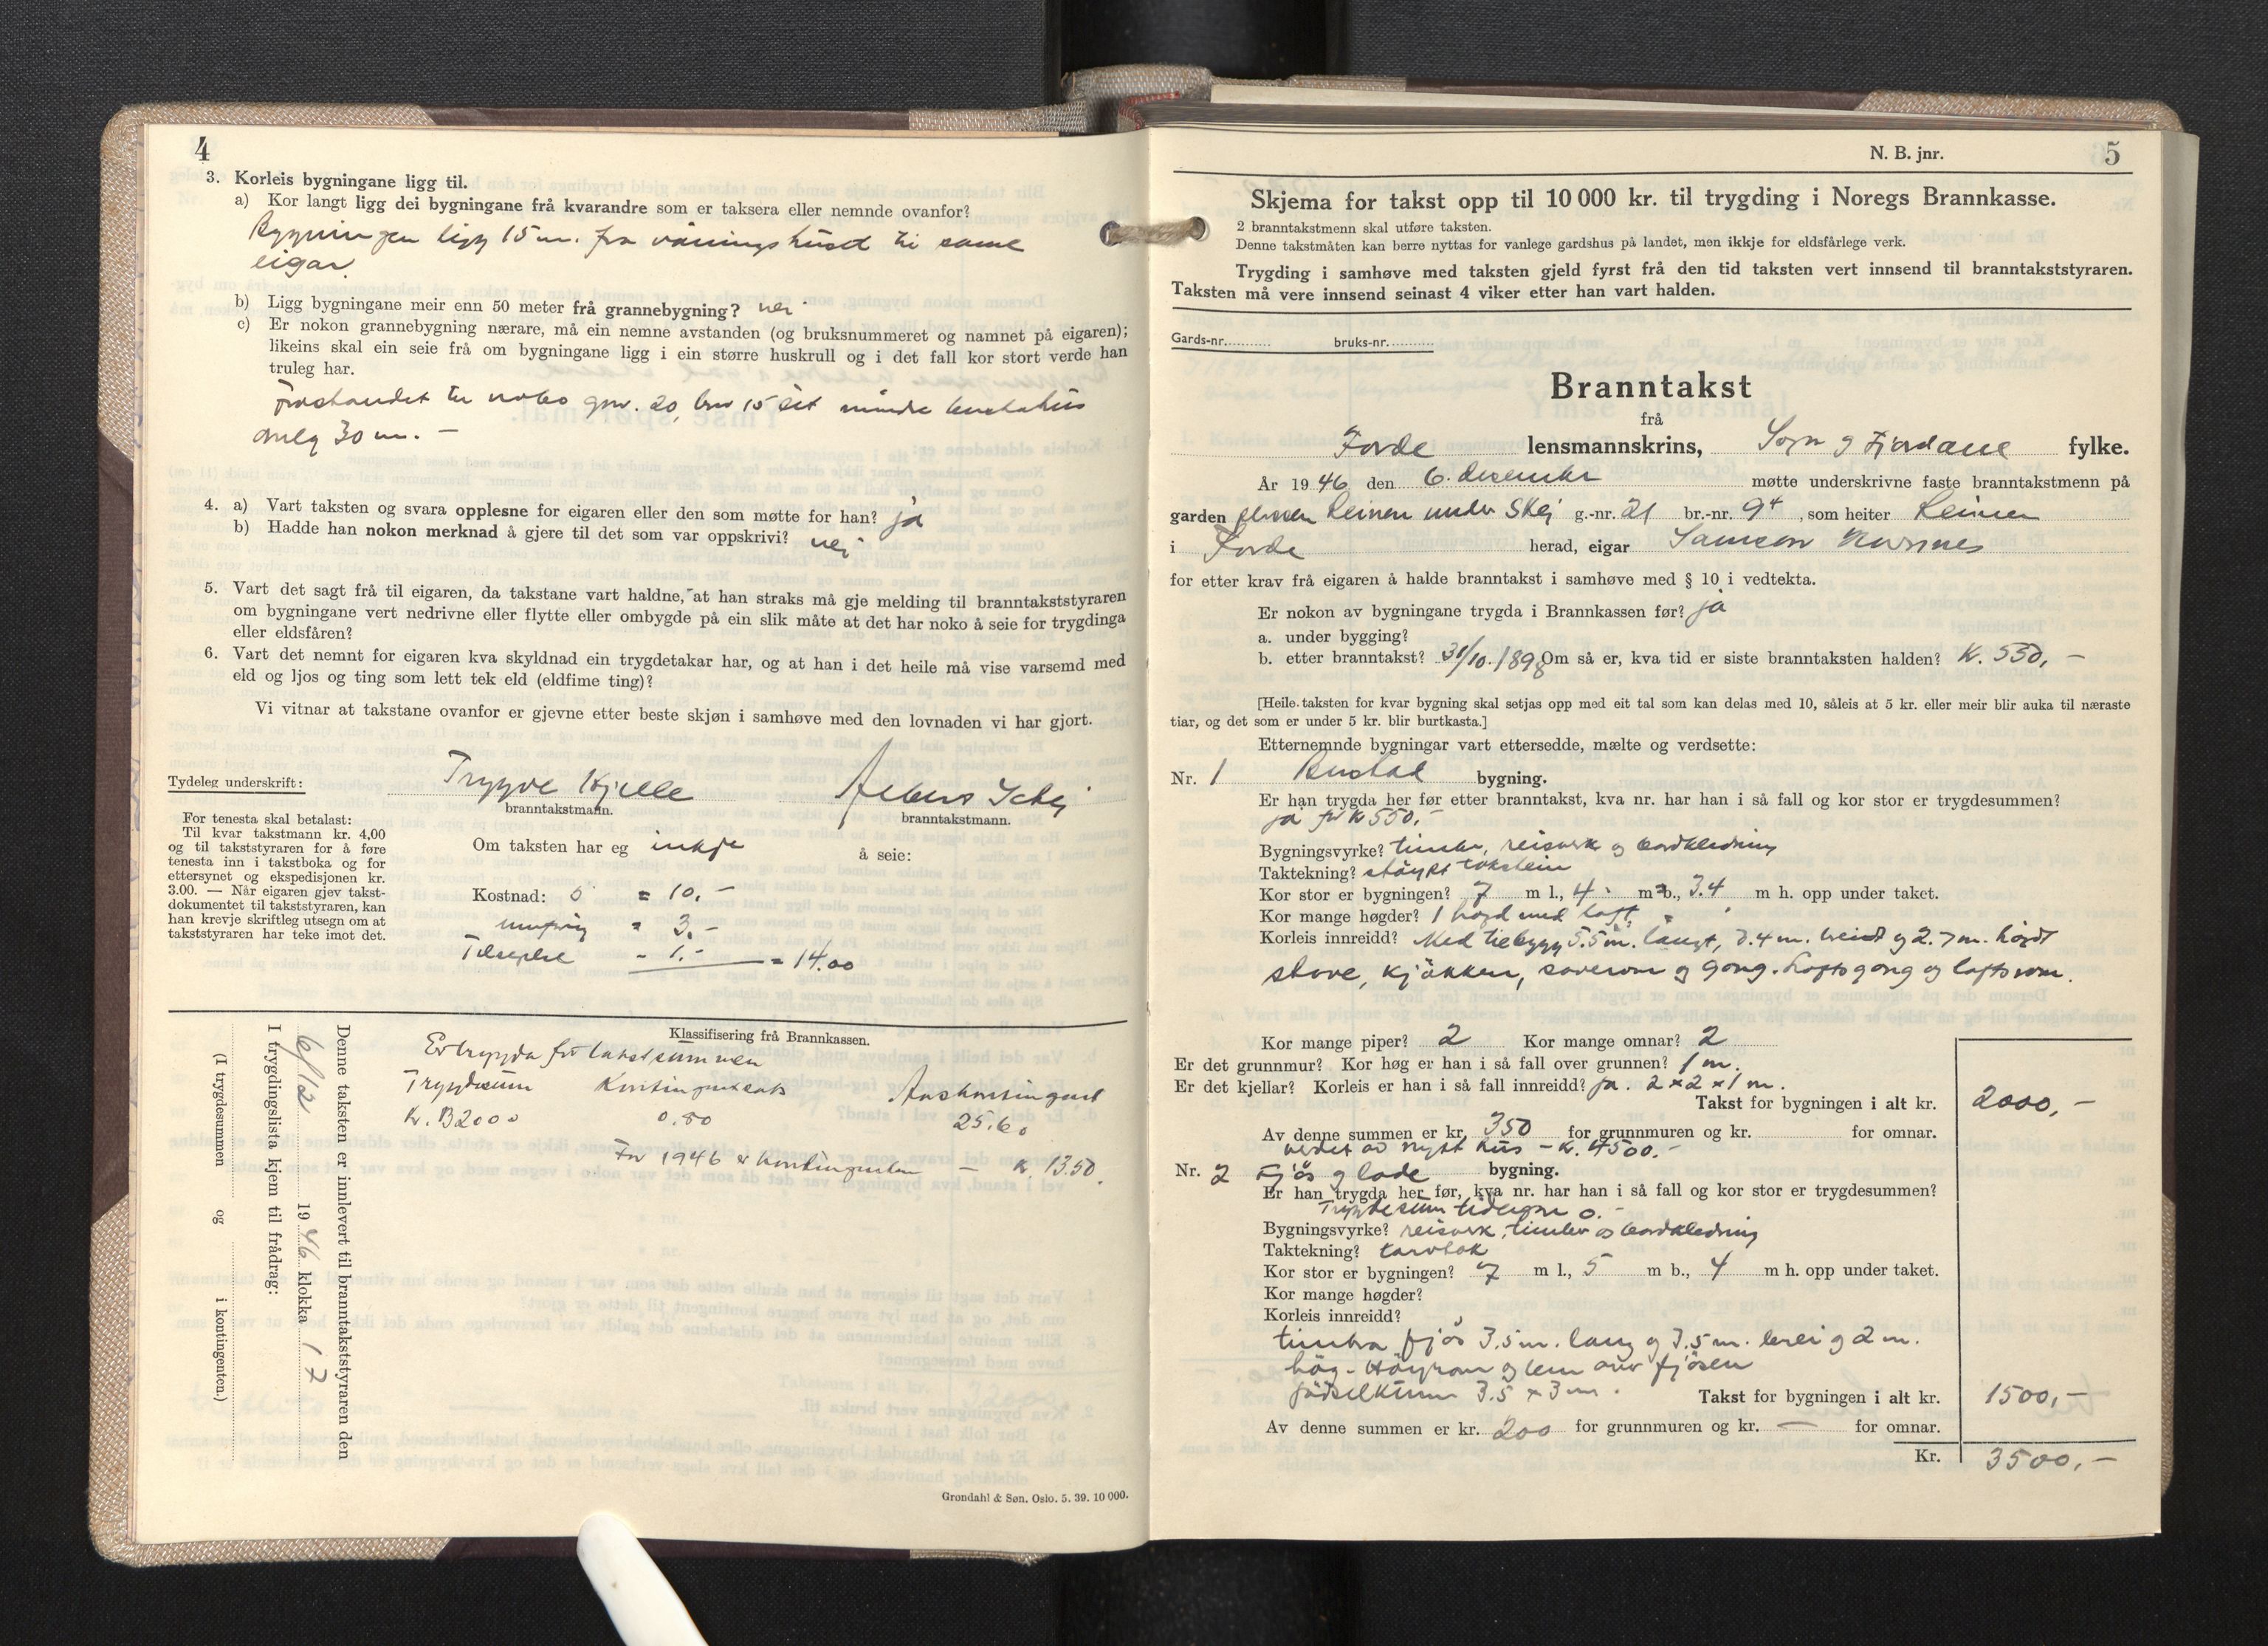 4
3. Korleis bygningane ligg til.
a) Kor langt ligg dei bygningane frå kvarandre som er taksera eller nemnde ovanfor?
Bygningen ligg 15 m. fra våningshuset til same
eigar.
b) Ligg bygningane meir enn 50 meter frå grannebygning? nei
c) Er nokon grannebygning nærare, må ein nemne avstanden (og bruksnummeret og namnet på eigaren);
likeins skal ein seie frå om bygningane ligg i ein større huskrull og i det fall kor stort verde han
truleg har.
til nabo gnr. 20, bnr 15 eit mindre
30 m. -
4. a) Vart taksten og svara opplesne for eigaren eller den som møtte for han? ja
b) Hadde han nokon merknad å gjere til det som var oppskrivi? nei
5. Vart det sagt frå til eigaren, da takstane vart haldne, at han straks må gje melding til branntakststyraren
om bygningane vert nedrivne eller flytte eller ombygde på ein slik måte at det har noko å seie for trygdinga
eller eldsfåren?
6. Vart det nemnt for eigaren kva skyldnad ein trygdetakar har, og at han i det heile må vise varsemd med
eld og ljos og ting som lett tek eld (eldfime ting)?
Vi vitnar at takstane ovanfor er gjevne etter beste skjøn i samhøve med den lovnaden vi har gjort.
Tydeleg underskrift:
Trygve Albert
branntakstmann. branntakstmann.
For tenesta skal betalast:
Til kvar takstmann kr. 4,00
og til takststyraren for å føre
tenesta inn i takstboka og for
ettersynet og ekspedisjonen kr.
3.00. — Når eigaren gjev takst-
dokumentet til takststyraren, kan
han krevje skriftleg utsegn om at
takststyraren har teke imot det.
Om taksten har eg inkje å seie:
Kostnad: = 10.-
= 3.-
- 1.- = 14.00
Klassifisering frå Brannkassen.
Er trygda for takstsummen
Trygdesum Kontingentsats Årskontingent
Kr. B2000 0.80 25.60
For 1946 er kontingenten — kr. 13.50.
Denne taksten er innlevert til branntakststyraren den
6/12 1946 klokka 17
I trygdingslista kjem til frådrag:
(I trygdesummen og i kontingenten.)
Grøndahl & Søn. Oslo. 5. 39. 10 000.
N. B. jnr. 5
Skjema for takst opp til 10 000 kr. til trygding i Noregs Brannkasse.
2 branntakstmenn skal utføre taksten.
Denne takstmåten kan berre nyttas for vanlege gardshus på landet, men ikkje for eldsfårlege verk.
Trygding i samhøve med taksten gjeld fyrst frå den tid taksten vert innsend til branntakststyraren.
Taksten må vere innsend seinast 4 viker etter han vart halden.
Gards-nr. bruks-nr.
Branntakst
frå
Førde lensmannskrins, Sogn og Fjordane fylke.
År 1946 den 6. desember møtte underskrivne faste branntakstmenn på
garden Reinen under Skei g.-nr. 21 br.-nr. 94, som heiter Reinen
i Førde herad, eigar Samson
for etter krav frå eigaren å halde branntakst i samhøve med § 10 i vedtekta.
Er nokon av bygningane trygda i Brannkassen før? ja
a. under bygging?
b. etter branntakst? 31/10.1898 Om så er, kva tid er siste branntaksten halden? Kr. 550,-
[Heile taksten for kvar bygning skal setjas opp med eit tal som kan delas med 10, såleis at 5 kr. eller meir blir auka til næraste
tiar, og det som er under 5 kr. blir burtkasta.]
Etternemnde bygningar vart ettersedde, mælte og verdsette:
Nr. 1 Bustad bygning.
Er han trygda her før etter branntakst, kva nr. har han i så fall og kor stor er trygdesummen?
ja for kr 550,-
Bygningsvyrke? timber, reisverk og bordkledning
Taktekning? støypt takstein
Kor stor er bygningen? 7 m l., 4 m b., 3.4 m h. opp under taket.
Kor mange høgder? 1 høgd med loft.
Korleis innreidd? Med tilbygg 5.5 m. langt, 3.4 m. breidt og 2.7 m. høgdt
stove, kjøkken, soverom og gong. Loftsgong og loftsrom.
Kor mange piper? 2 Kor mange omnar? 2
Er det grunnmur? Kor høg er han i så fall over grunnen? 1 m.
Er det kjellar? Korleis er han i så fall innreidd? ja. 2 x 2 x 1 m.
Takst for bygningen i alt kr. 2000,-
Av denne summen er kr. 350 for grunnmuren og kr. for omnar.
verdet av nytt hus - kr. 4500.-
Nr. 2 Fjøs og løde bygning.
Er han trygda her før, kva nr. har han i så fall og kor stor er trygdesummen?
Trygdesum tidlegare 0.-
Bygningsvyrke? reisverk, timber og bordkledning
Taktekning? torvtak
Kor stor er bygningen? 7 m l., 5 m b., 4 m h. opp under taket.
Kor mange høgder?
Korleis innreidd?
timbra fjøs 3.5 m. lang og 3.5 m. brei og 2 m.
høg - Høyrom og lem over fjøsen
3.5 x 3 m. Takst for bygningen i alt kr. 1500,-
Av denne summen er kr. 200 for grunnmuren og kr. — for omnar.
Kr. 3500,-